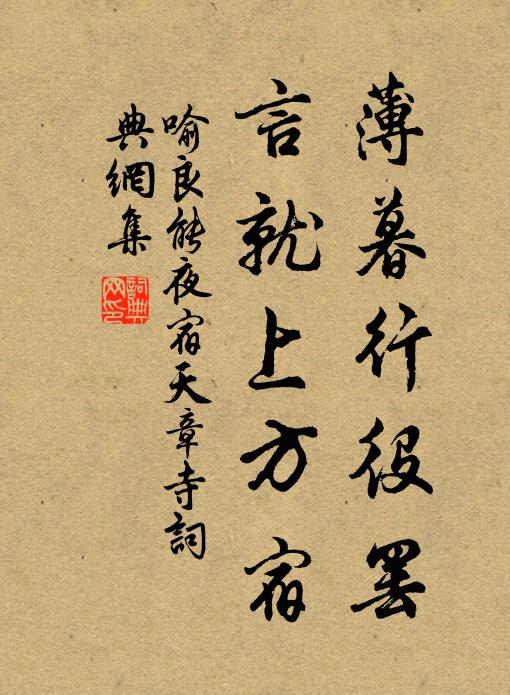 薄暮行役罢
言就上方宿
喻良能夜宿天章寺詞
典網集
詞典網印